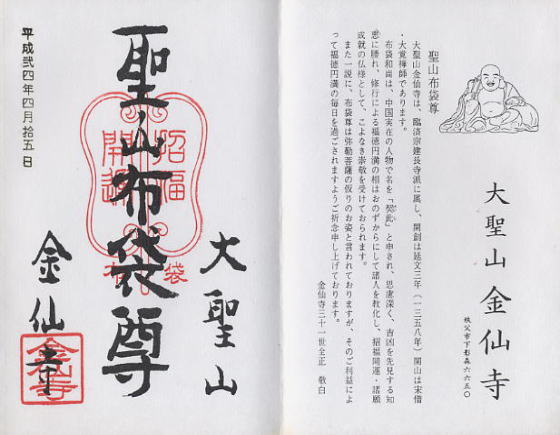 大聖山 金仙寺
秩父市下影森六六五〇
聖山布袋尊
大聖山金仙寺は、臨済宗建長寺派に属し、開創は延文三年(一三五八年)開山は宋僧
・大覚禅師であります。
布袋和尚は、中国実在の人物で名を「契此」と申され、思慮深く、吉凶を先見する知
恵に勝れ、修行による福徳円満の相はおのずからにして諸人を教化し、招福開運・諸願
成就の仏様として、こよなき崇敬を受けておられます。
また一説に、布袋尊は弥勒菩薩の仮りのお姿と言われておりますが、そのご利益によ
って福徳円満の毎日を過ごされますようご祈念申し上げております。
金仙寺三十一世全正 敬白
大聖山
聖山布袋尊
招福
開運
袋
金仙寺
金仙寺
平成弐四年四月拾五日